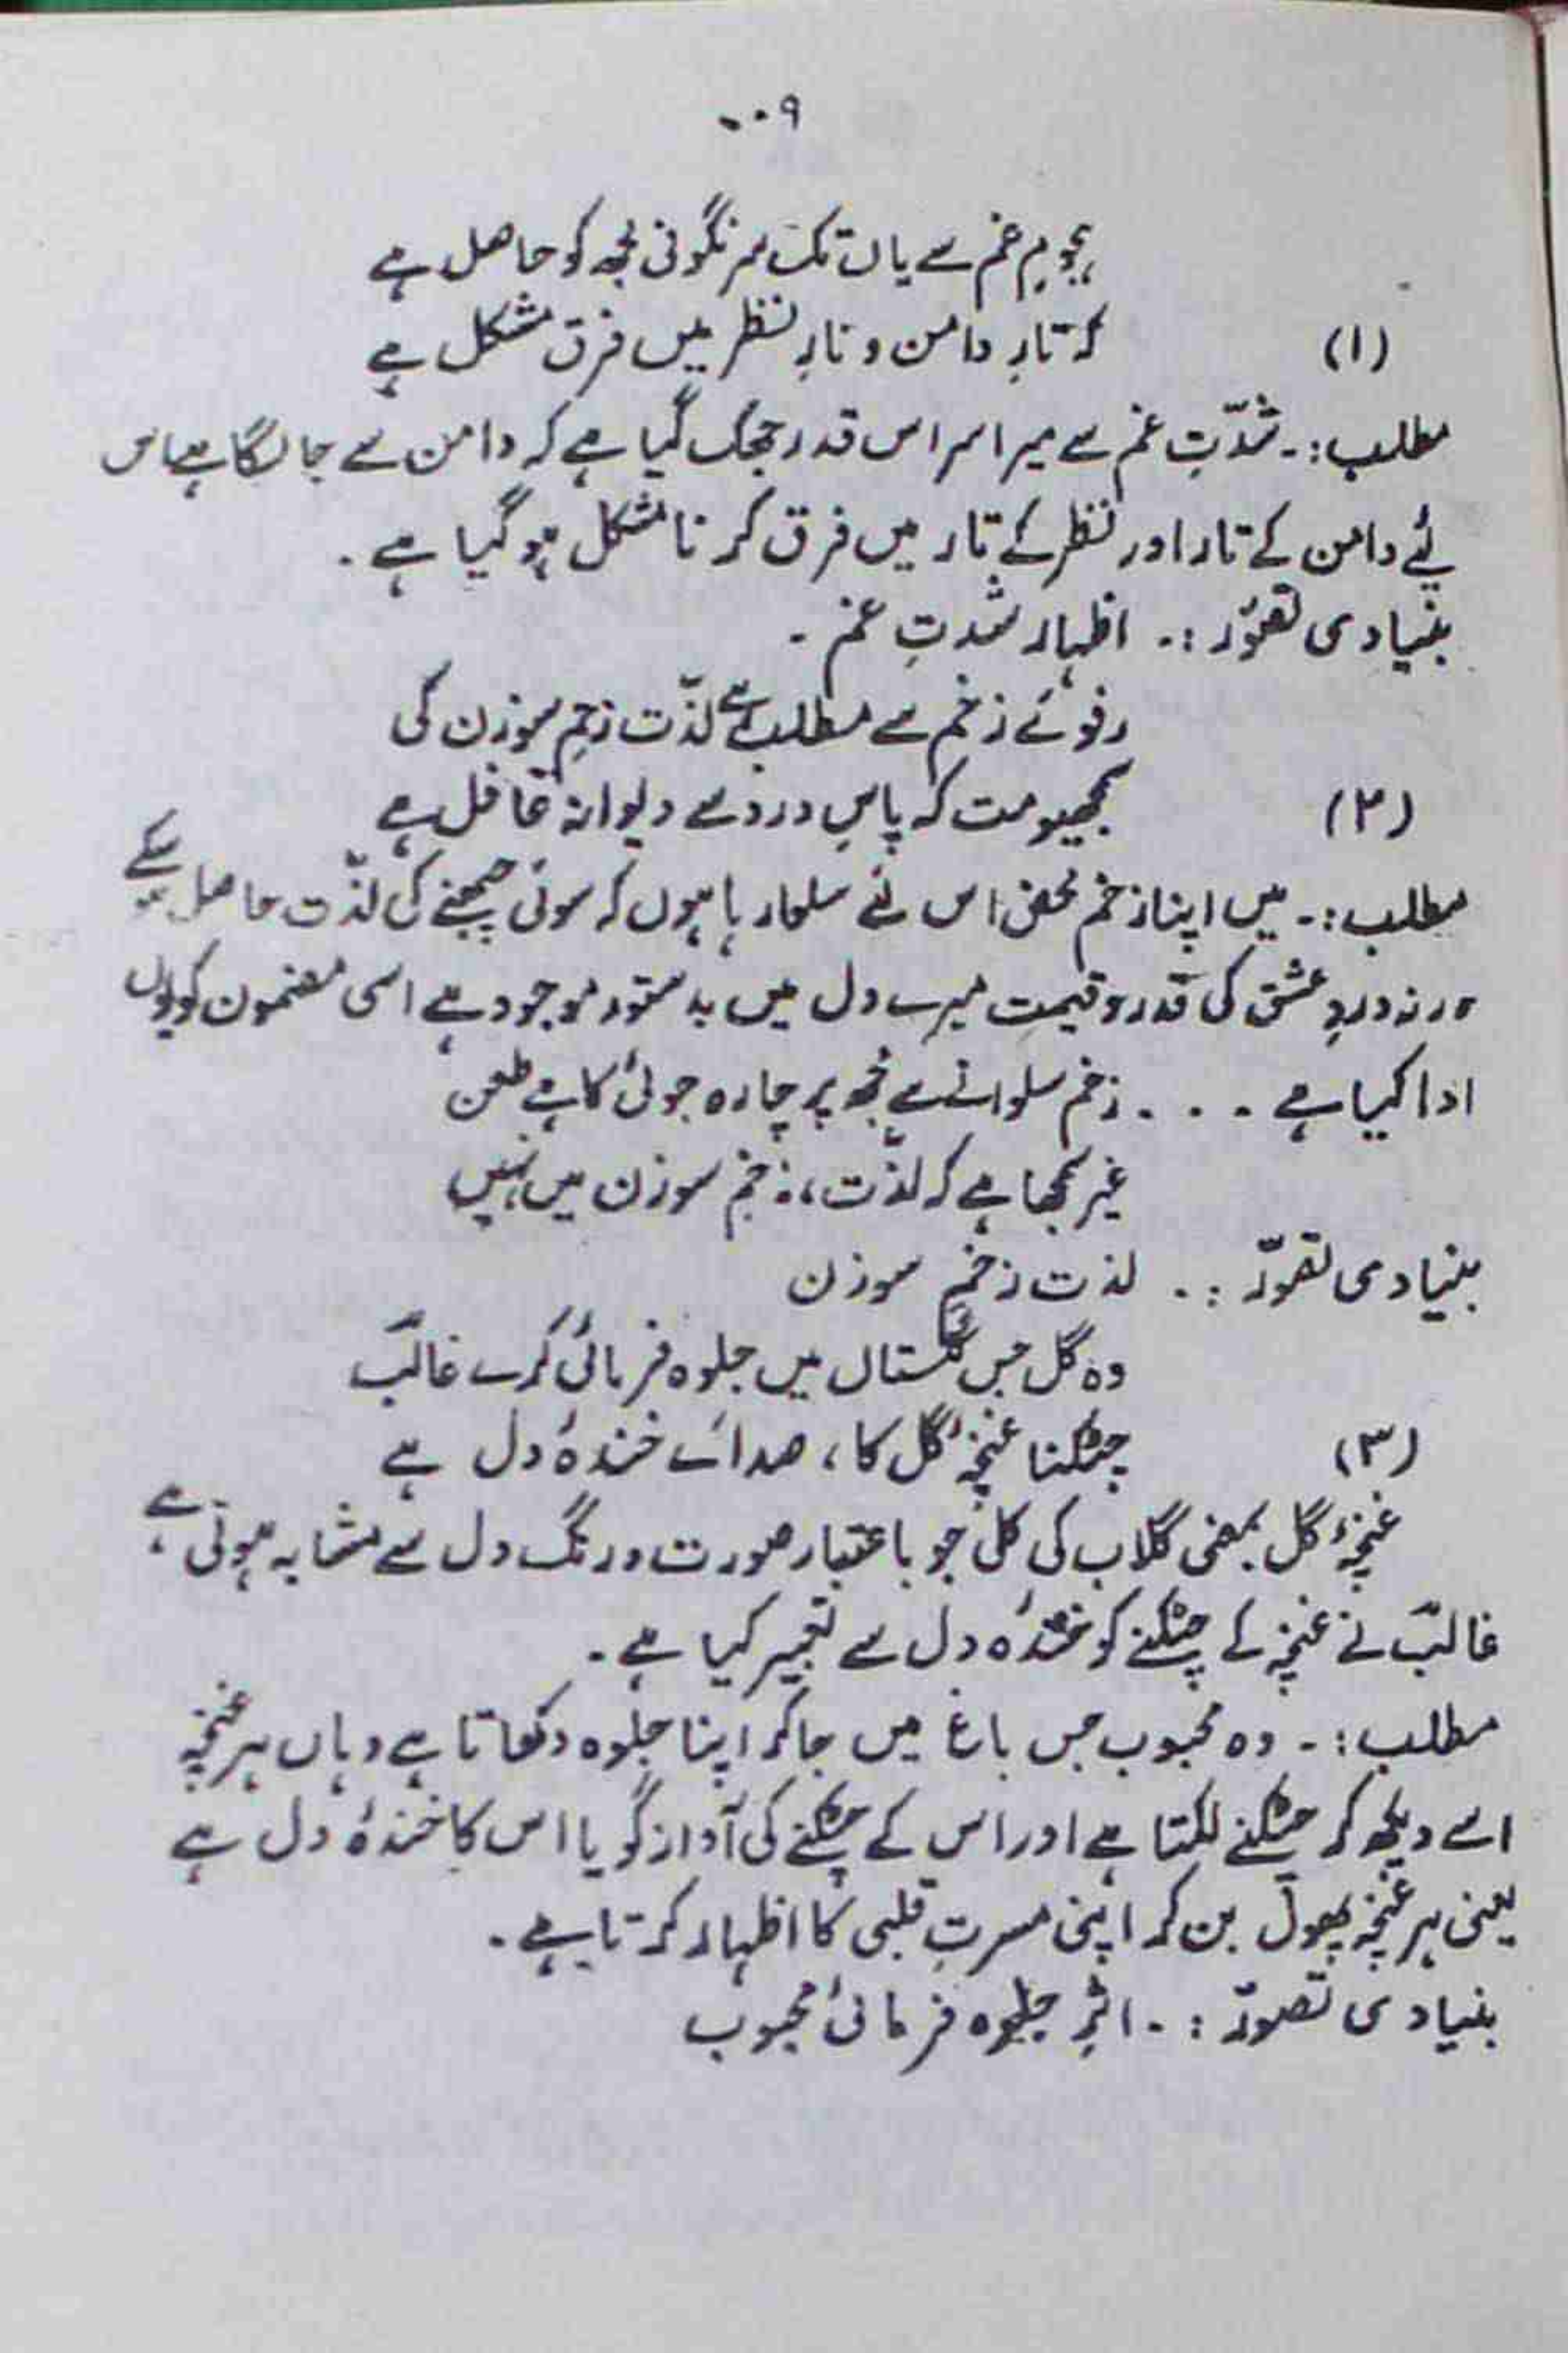 ۰۰۹
ہجومِ غم سے یاں تک سرنگونی مجھ کو حاصل ہے
(۱) کہ تارِ دامن و تارِ نظر میں فرق مشکل ہے
مطلب:۔ شدّتِ غم سے میرا سر اس قدر جھک گیا ہے کہ دامن سے جا لگا ہے اس
لئے دامن کے تار اور نظر کے تار میں فرق کرنا مشکل ہو گیا ہے ۔
بنیادی تصوّر :۔ اظہارِ شدتِ غم ۔
رفوئے زخم سے مطلب ہے لذّت زخمِ سوزن کی
(۲) سمجھیو مت کہ پاسِ درد سے دیوانہ غافل ہے
مطلب:۔ میں اپنا زخم محض اس لئے سلوا رہا ہوں کہ سوئی چبھنے کی لذّت حاصل ہو سکے
ورنہ دردِ عشق کی قدر و قیمت میرے دل میں بدستور موجود ہے اسی مضمون کو یوں
ادا کیا ہے ۔ ۔ ۔ زخم سلوانے سے مجھ پر چارہ جوئی کا ہے طعن
غیر سمجھا ہے کہ لذّت، زخمِ سوزن میں نہیں
بنیادی تصوّر :۔ لذت زخمِ سوزن
وہ گل جس گلستاں میں جلوہ فرمائی کرے غالبؔ
(۳) چٹکنا غنچۂ گل کا، صدائے خندۂ دل ہے
غنچۂ گل بمعنی گلاب کی کلی جو باعتبار صورت و رنگ دل سے مشابہ ہوتی ہے،
غالبؔ نے غنچہ کے چٹکنے کو خندۂ دل سے تعبیر کیا ہے ۔
مطلب:۔ وہ محبوب جس باغ میں جا کر اپنا جلوہ دکھاتا ہے وہاں ہر غنچہ
اسے دیکھ کر چٹکنے لگتا ہے اور اس کے چٹکنے کی آواز گویا اس کا خندۂ دل ہے
یعنی ہر غنچہ پھول بن کر اپنی مسرتِ قلبی کا اظہار کرتا ہے ۔
بنیادی تصوّر :۔ اثرِ جلوہ فرمائیٔ محبوب